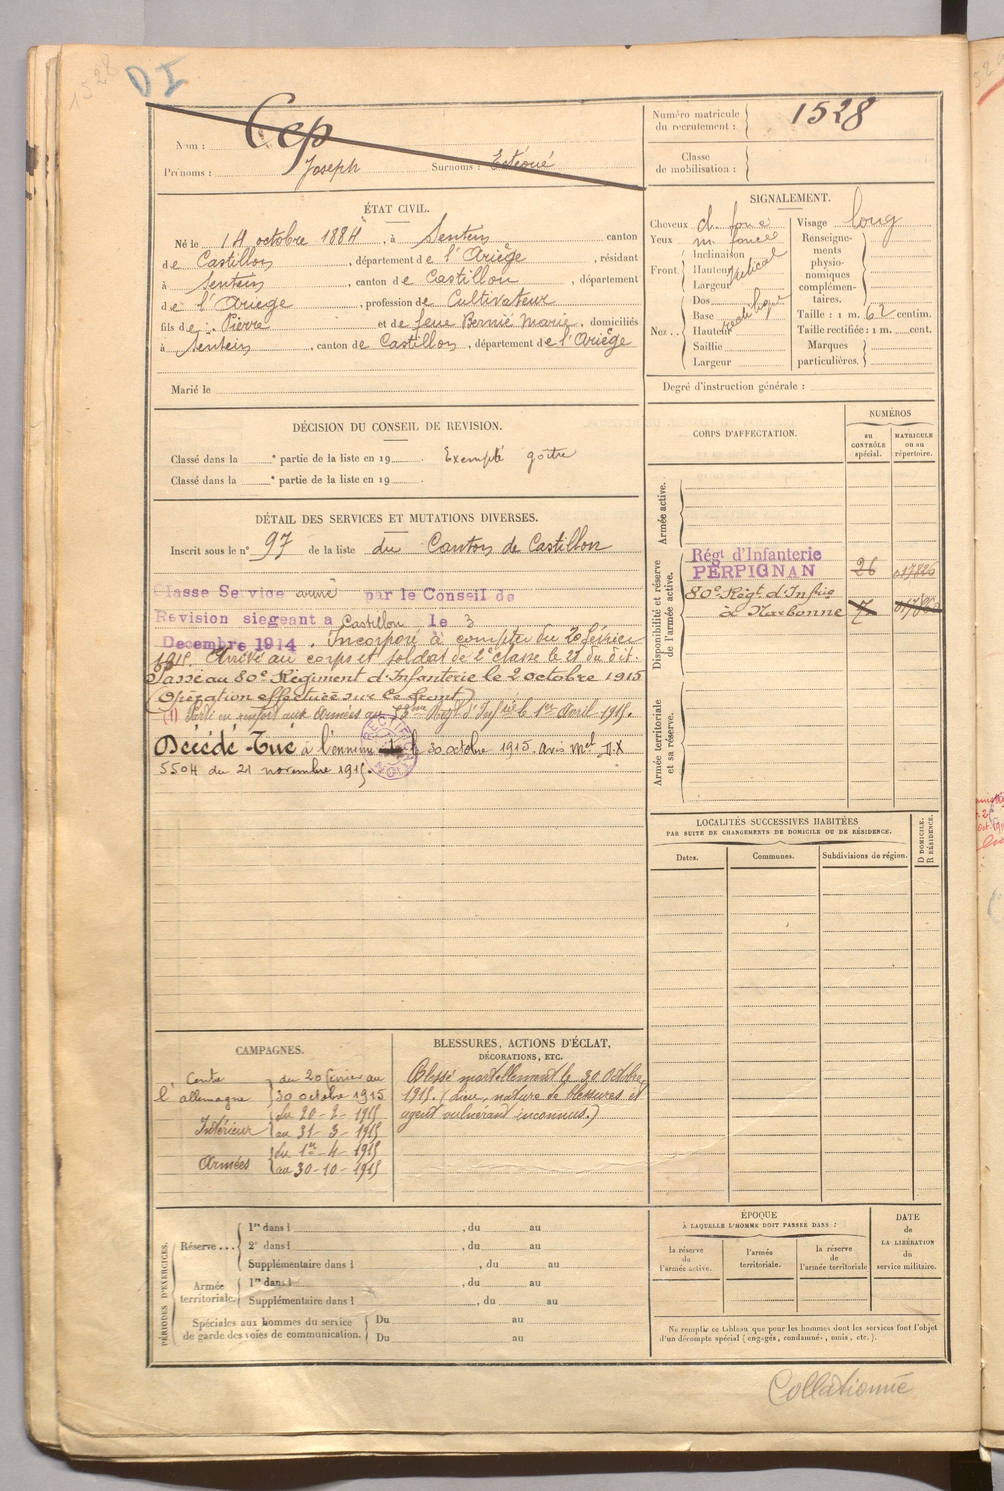 1528
DI
Nom : Cep
Prénoms : Joseph Surnoms : Estéoué
Numéro matricule du recrutement : 1528
Classe de mobilisation :
ÉTAT CIVIL.
Né le 14 octobre 1884, à Sentein canton
de Castillon, département de l'Ariège, résidant
à Sentein, canton de Castillon, département
de l'Ariège, profession de Cultivateur
fils de Pierre et de feue Bernié Marie, domiciliés
à Sentein, canton de Castillon, département de l'Ariège
Marié le
SIGNALEMENT.
Cheveux ch. foncé
Yeux m. foncé
Front. Inclinaison
Hauteur vertical
Largeur
Nez.. Dos
Base
Hauteur rectiligne
Saillie
Largeur
Visage long
Renseignements physionomiques complémentaires.
Taille : 1 m. 62 centim.
Taille rectifiée : 1 m. cent.
Marques particulières.
Degré d'instruction générale :
DÉCISION DU CONSEIL DE REVISION.
Classé dans la e partie de la liste en 19 . Exempté goitre
Classé dans la e partie de la liste en 19 .
DÉTAIL DES SERVICES ET MUTATIONS DIVERSES.
Inscrit sous le n° 97 de la liste du Canton de Castillon
Classe Service armé par le Conseil de
Revision siegeant a Castillon, le 3
Decembre 1914. Incorporé à compter du 20 février
1915. Arrivé au corps et soldat de 2e classe le 21 du dit.
Passé au 80e Régiment d'Infanterie le 2 octobre 1915
(Opération effectuée sur le front)
(1) Parti en renfort aux Armées au 53me Régt d'Infrie le 1er Avril 1915.
Décédé - Tué à l'ennemi le 30 octobre 1915. avis Mel D.X
5504 du 21 novembre 1915.
RECTIFICATION
CORPS D'AFFECTATION.
NUMÉROS
au CONTRÔLE spécial.
MATRICULE ou au répertoire.
Armée active.
Disponibilité et réserve de l'armée active.
Régt d'Infanterie
PERPIGNAN 26
80e Régt d'Infrie
à Narbonne
Armée territoriale et sa réserve.
LOCALITÉS SUCCESSIVES HABITÉES
PAR SUITE DE CHANGEMENTS DE DOMICILE OU DE RÉSIDENCE.
Dates. Communes. Subdivisions de région. D DOMICILE. R RÉSIDENCE.
CAMPAGNES.
Contre l'allemagne du 20 février au
30 octobre 1915
Intérieur du 20-2-1915
au 31-3-1915
Armées du 1er-4-1915
au 30-10-1915
BLESSURES, ACTIONS D'ÉCLAT,
DÉCORATIONS, ETC.
Blessé mortellement le 30 Octobre
1915. (Lieu, nature de blessures et
agent vulnérant inconnus.)
PÉRIODES D'EXERCICES.
Réserve... 1re dans l , du au
2e dans l , du au
Supplémentaire dans l , du au
Armée territoriale. 1re dans l , du au
Supplémentaire dans l , du au
Spéciales aux hommes du service
de garde des voies de communication. Du au
Du au
ÉPOQUE
À LAQUELLE L'HOMME DOIT PASSER DANS :
la réserve de l'armée active.
l'armée territoriale.
la réserve de l'armée territoriale
DATE de LA LIBÉRATION du service militaire.
Ne remplir ce tableau que pour les hommes dont les services font l'objet
d'un décompte spécial (engagés, condamnés, omis, etc.).
Collationné